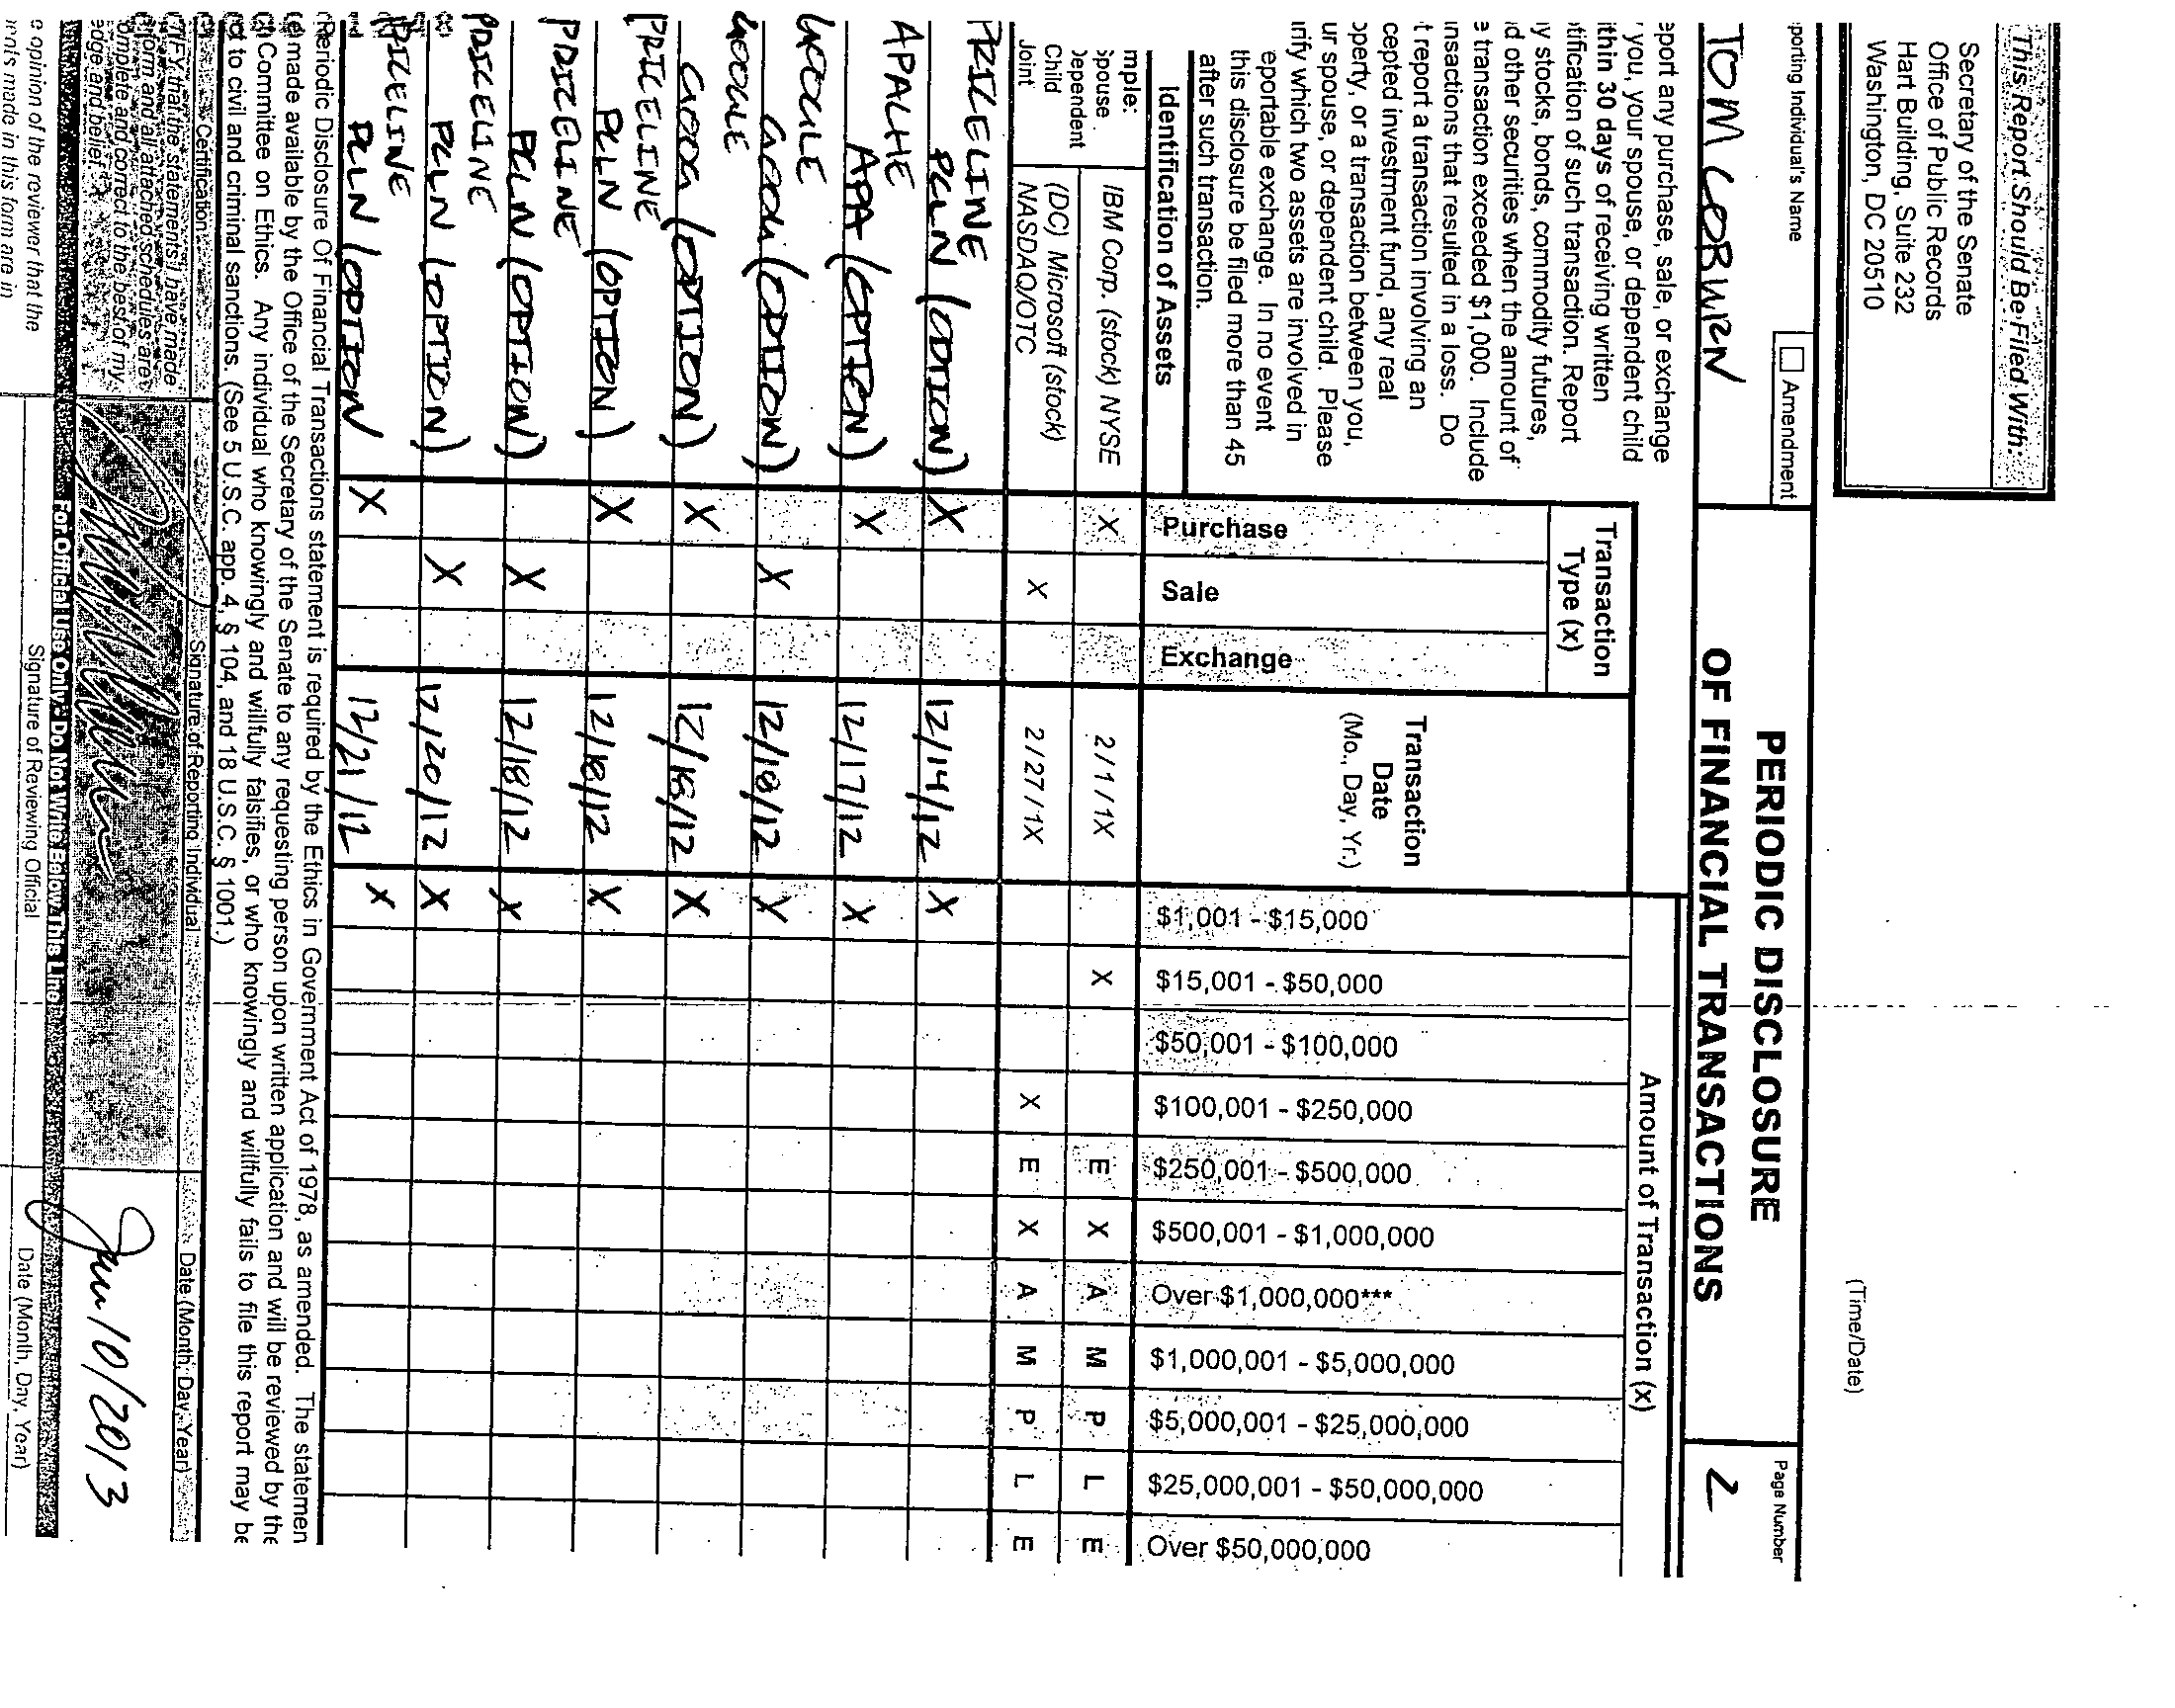 This Report Should Be Filed With:
Secretary of the Senate
Office of Public Records
Hart Building, Suite 232
Washington, DC 20510
(Time/Date)
porting Individual's Name
Amendment
TOM COBURN
PERIODIC DISCLOSURE
OF FINANCIAL TRANSACTIONS
Page Number
2
eport any purchase, sale, or exchange
you, your spouse, or dependent child
ithin 30 days of receiving written
tification of such transaction. Report
y stocks, bonds, commodity futures,
d other securities when the amount of
e transaction exceeded $1,000. Include
nsactions that resulted in a loss. Do
t report a transaction involving an
cepted investment fund, any real
operty, or a transaction between you,
ur spouse, or dependent child. Please
rify which two assets are involved in
eportable exchange. In no event
this disclosure be filed more than 45
after such transaction.
Identification of Assets
Transaction
Type (x)
Purchase
Sale
Exchange
Transaction
Date
(Mo., Day, Yr.)
Amount of Transaction (x)
$1,001 - $15,000
$15,001 - $50,000
$50,001 - $100,000
$100,001 - $250,000
$250,001 - $500,000
$500,001 - $1,000,000
Over $1,000,000***
$1,000,001 - $5,000,000
$5,000,001 - $25,000,000
$25,000,001 - $50,000,000
Over $50,000,000
mple:
Spouse
Dependent
Child
Joint
IBM Corp. (stock) NYSE X 2/1/1X X E X A M P L E
(DC) Microsoft (stock)
NASDAQ/OTC X 2/27/1X X E X A M P L E
PRICELINE
PCLN (OPTION) X 12/14/12 X
APALHE
APA (OPTION) X 12/17/12 X
GOOGLE
GOOG (OPTION) X 12/18/12 X
GOOGLE
GOOG (OPTION) X 12/18/12 X
PRICELINE
PCLN (OPTION) X 12/18/12 X
PRICELINE
PCLN (OPTION) X 12/18/12 X
PRICELINE
PCLN (OPTION) X 12/20/12 X
PRICELINE
PCLN (OPTION X 12/21/12 X
Periodic Disclosure Of Financial Transactions statement is required by the Ethics in Government Act of 1978, as amended. The statemen
made available by the Office of the Secretary of the Senate to any requesting person upon written application and will be reviewed by the
Committee on Ethics. Any individual who knowingly and willfully falsifies, or who knowingly and willfully fails to file this report may be
ct to civil and criminal sanctions. (See 5 U.S.C. app. 4, § 104, and 18 U.S.C. § 1001.)
Certification
Signature of Reporting Individual
Date (Month, Day, Year)
TIFY that the statements I have made
form and all attached schedules are
omplete and correct to the best of my
edge and belief.
Jan 10/2013
For Official Use Only - Do Not Write Below This Line
e opinion of the reviewer that the
ents made in this form are in
Signature of Reviewing Official
Date (Month, Day, Year)